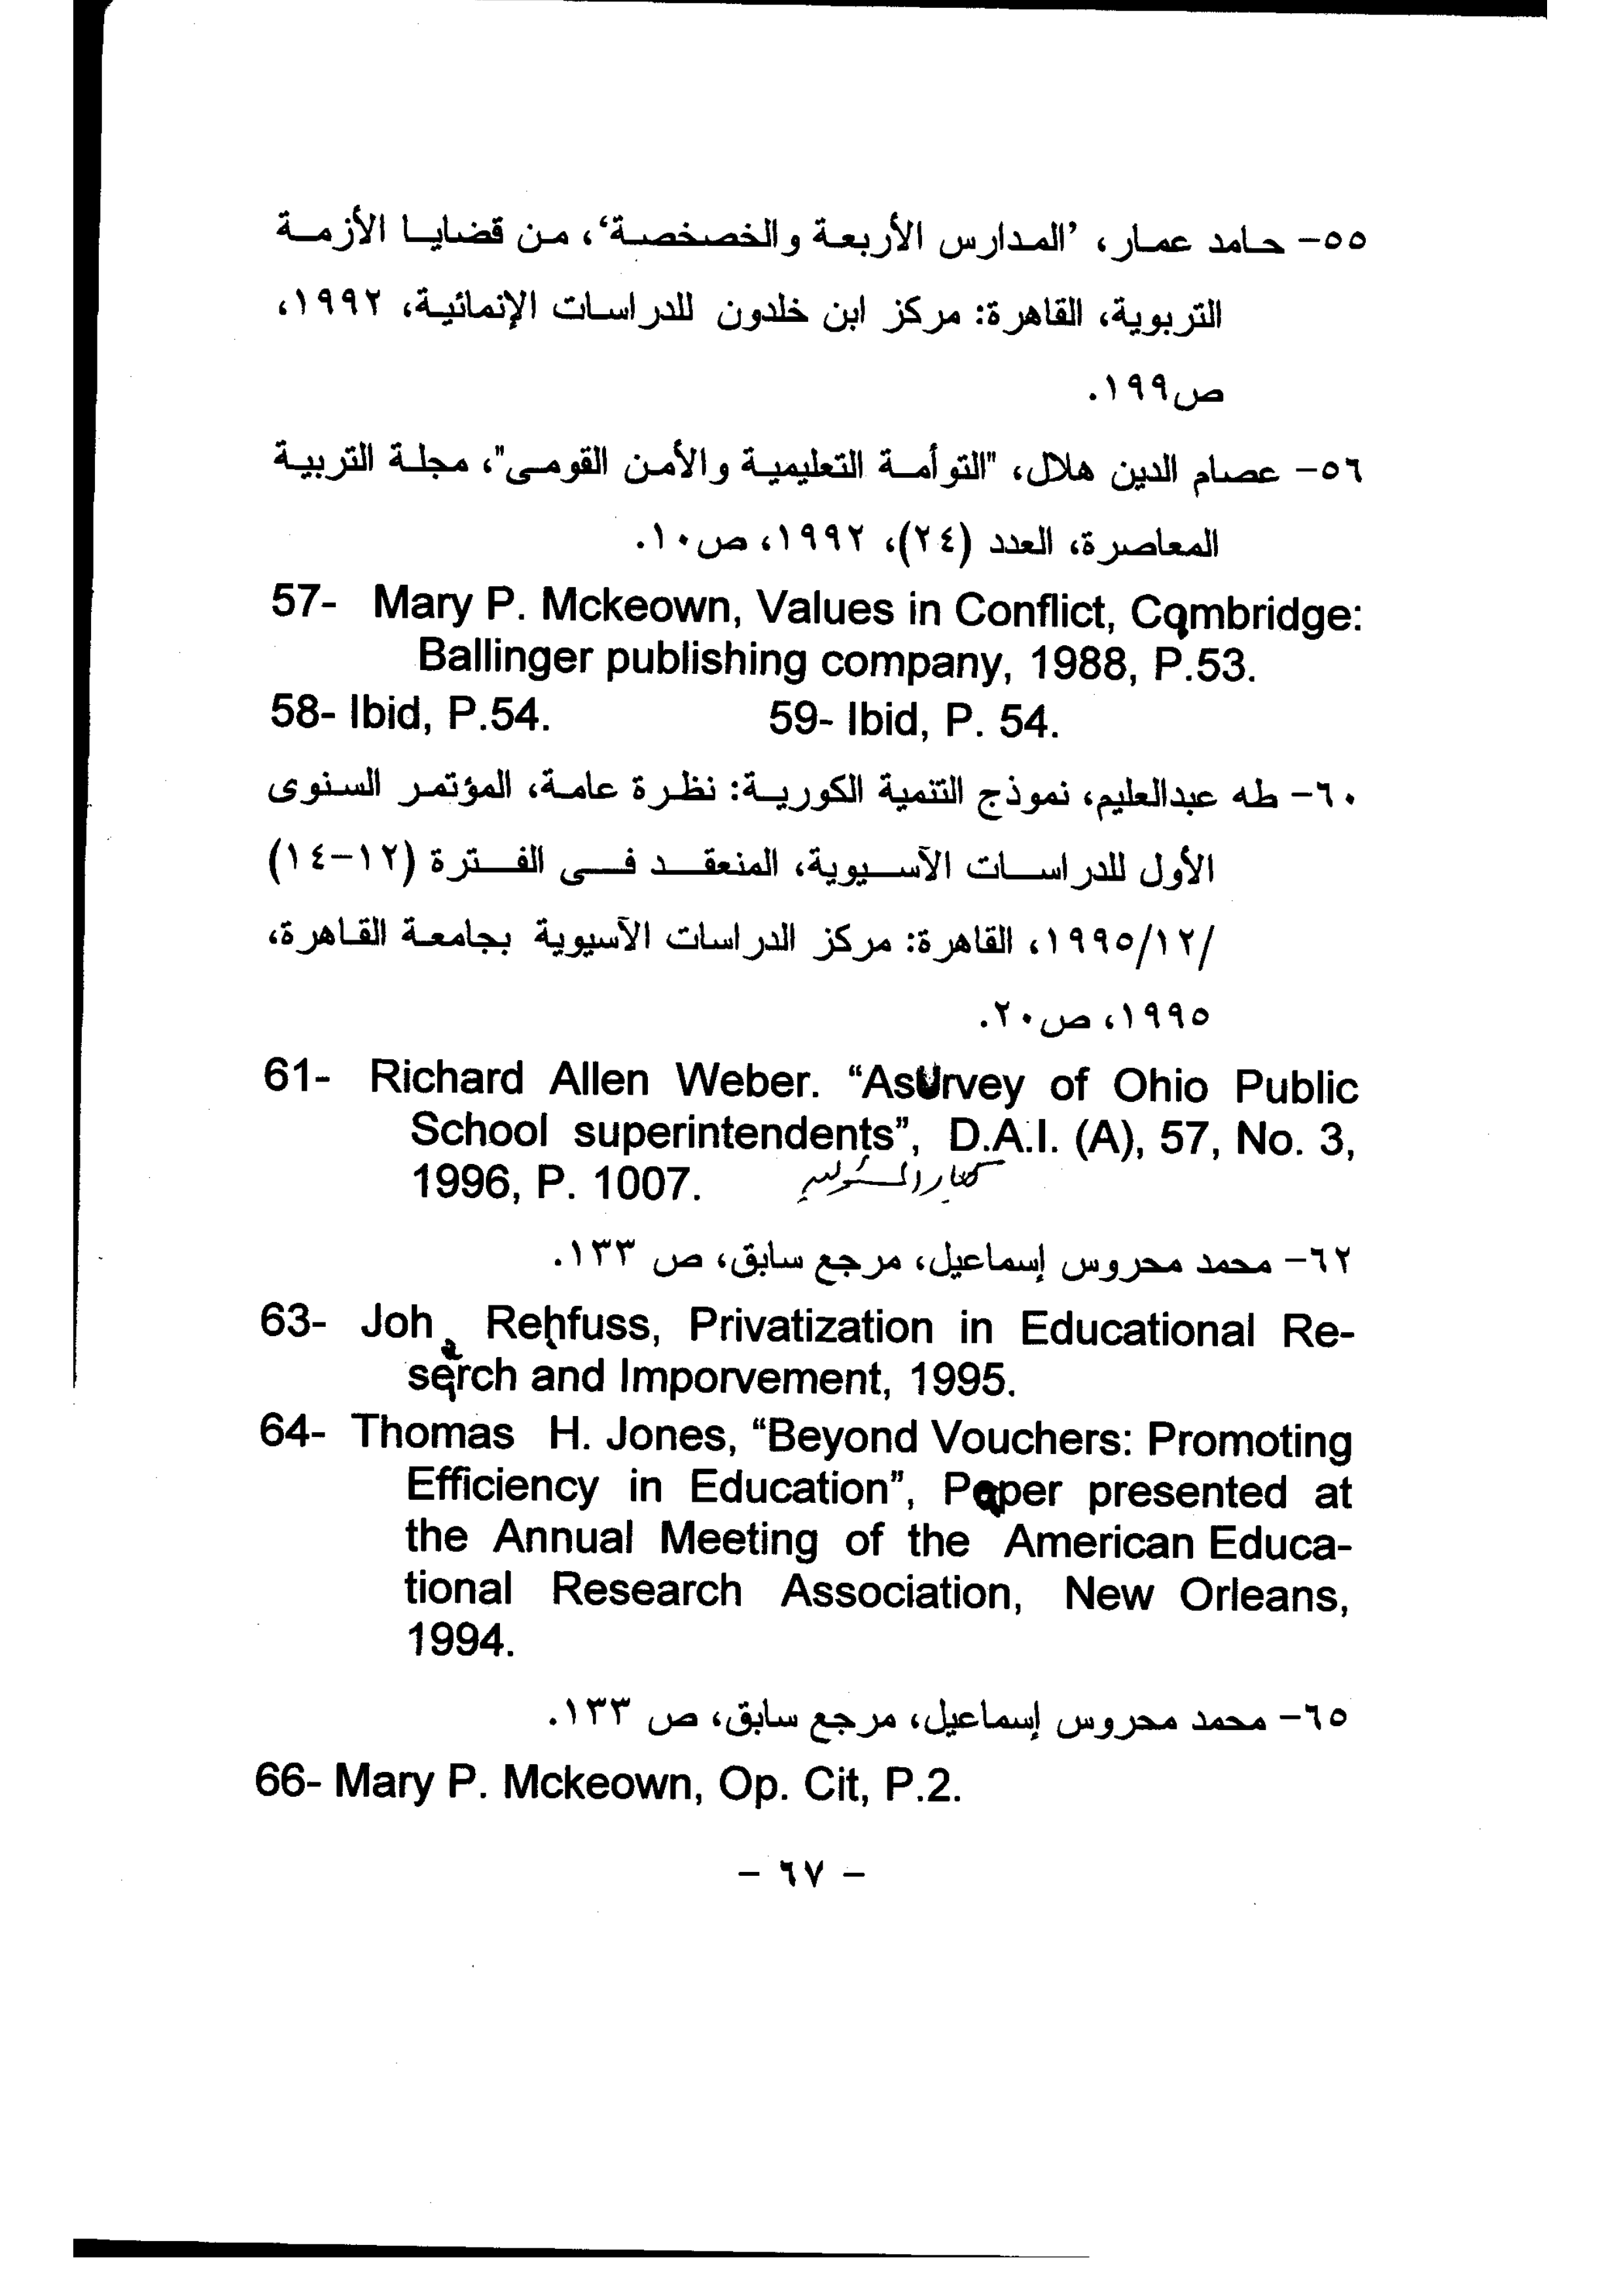 ٥٥- حامد عمار، ’المدارس الأربعة والخصخصة‘، من قضايا الأزمة
التربوية، القاهرة: مركز ابن خلدون للدراسات الإنمائية، ١٩٩٢،
ص١٩٩.
٥٦- عصام الدين هلال، "التوأمة التعليمية والأمن القومى"، مجلة التربية
المعاصرة، العدد (٢٤)، ١٩٩٢، ص١٠.
57- Mary P. Mckeown, Values in Conflict, Cambridge:
Ballinger publishing company, 1988, P.53.
58- Ibid, P.54. 59- Ibid, P. 54.
٦٠- طه عبدالعليم، نموذج التنمية الكورية: نظرة عامة، المؤتمر السنوى
الأول للدراسات الآسيوية، المنعقد فى الفترة (١٢-١٤)
/١٩٩٥/١٢، القاهرة: مركز الدراسات الآسيوية بجامعة القاهرة،
١٩٩٥، ص٢٠.
61- Richard Allen Weber. “AsUrvey of Ohio Public
School superintendents”, D.A.I. (A), 57, No. 3,
1996, P. 1007.
٦٢- محمد محروس إسماعيل، مرجع سابق، ص ١٣٣.
63- Joh Rehfuss, Privatization in Educational Re-
serch and Imporvement, 1995.
64- Thomas H. Jones, “Beyond Vouchers: Promoting
Efficiency in Education”, Paper presented at
the Annual Meeting of the American Educa-
tional Research Association, New Orleans,
1994.
٦٥- محمد محروس إسماعيل، مرجع سابق، ص ١٣٣.
66- Mary P. Mckeown, Op. Cit, P.2.
- ٦٧ -